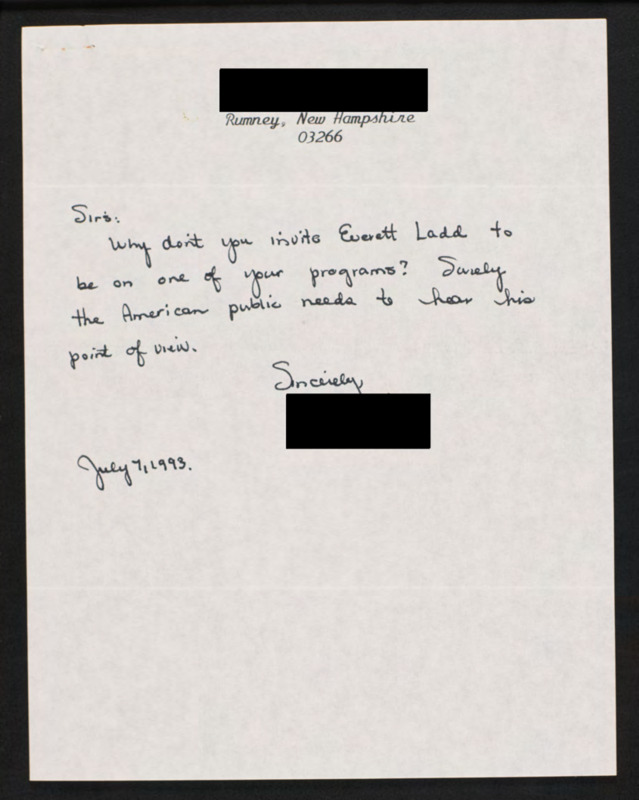 Rumney, New Hampshire
03266
Sirs:
Why don't you invite Everett Ladd to
be on one of your programs? Surely
the American public needs to hear his
point of view.
Sincerely,
July 7, 1993.